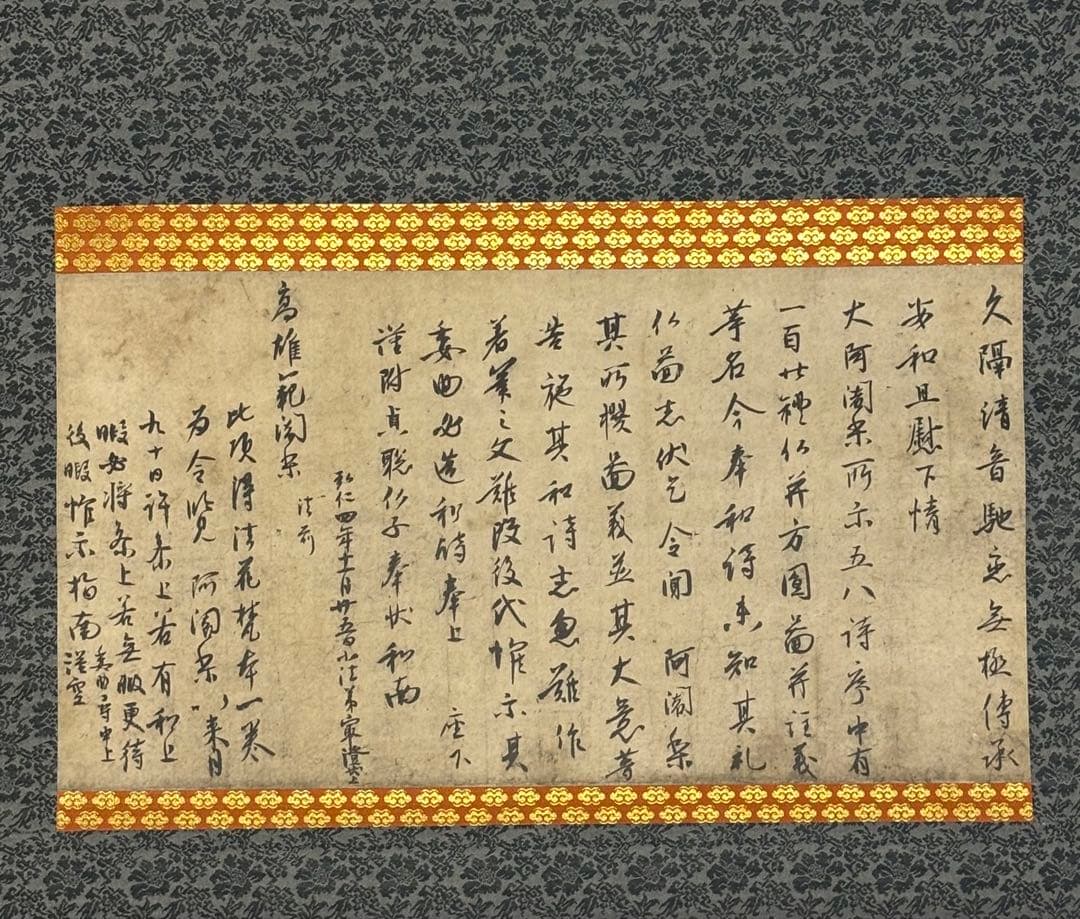 久隔清音馳恋無極傳承
安和且慰下情
大阿闍梨所示五八詩序中有
一百廿禮仏并方圓圖并註義
等名今奉和詩未知其礼
仏圖者伏乞令聞 阿闍梨
其所撰圖義并其大意等
告施其和詩者忽難作
著筆之文難改後代惟示其
委曲必造和詩奉上 座下
謹附貞聡仏子奉状和南
弘仁四年十一月廿五日小法弟最澄状上
高雄範闍梨
法前
此頃得法花梵本一巻
為令覧 阿闍梨以来月
九十日許参上若有和上
暇必将参上若無暇更待
後暇惟示指南 委曲尋申上
謹空